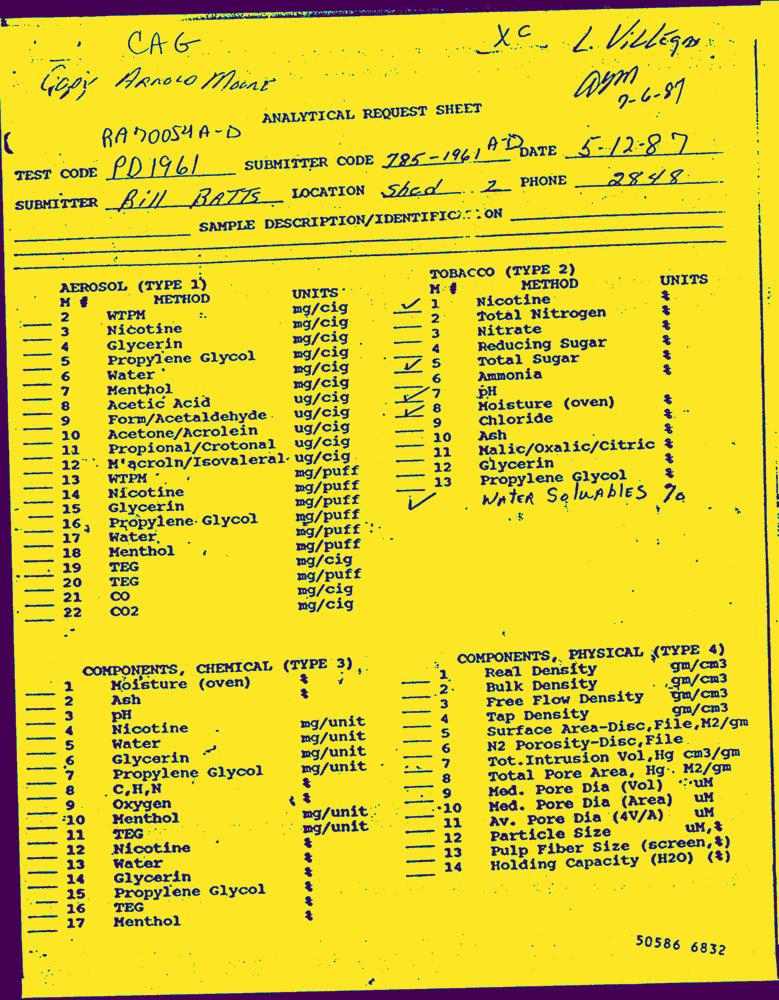 CAG
XC L. Villegas
Copy Arnold Moore
7-6-87
ANALYTICAL REQUEST SHEET
RA70054A-D
TEST CODE PD1961 SUBMITTER CODE 785-1961 A-D DATE 5-12-87
SUBMITTER Bill BATTS LOCATION Shed 2 PHONE 2848
SAMPLE DESCRIPTION/IDENTIFIC ON
AEROSOL (TYPE 1)
M # METHOD UNITS
2 WTPM mg/cig
3 Nicotine mg/cig
4 Glycerin mg/cig
5 Propylene Glycol mg/cig
6 Water mg/cig
7 Menthol mg/cig
8 Acetic Acid ug/cig
9 Form/Acetaldehyde ug/cig
10 Acetone/Acrolein ug/cig
11 Propional/Crotonal ug/cig
12 M'acroln/Isovaleral ug/cig
13 WTPM mg/puff
14 Nicotine mg/puff
15 Glycerin mg/puff
16 Propylene Glycol mg/puff
17 Water mg/puff
18 Menthol mg/puff
19 TEG mg/cig
20 TEG mg/puff
21 CO mg/cig
22 CO2 mg/cig
TOBACCO (TYPE 2)
M # METHOD UNITS
✓ 1 Nicotine %
2 Total Nitrogen %
3 Nitrate %
4 Reducing Sugar %
✓ 5 Total Sugar %
6 Ammonia %
✓ 7 pH
✓ 8 Moisture (oven) %
9 Chloride %
10 Ash %
11 Malic/Oxalic/Citric %
12 Glycerin %
13 Propylene Glycol %
✓ WATER SOLUABLES %
COMPONENTS, CHEMICAL (TYPE 3)
1 Moisture (oven) %
2 Ash %
3 pH
4 Nicotine mg/unit
5 Water mg/unit
6 Glycerin mg/unit
7 Propylene Glycol mg/unit
8 C,H,N %
9 Oxygen %
10 Menthol mg/unit
11 TEG mg/unit
12 Nicotine %
13 Water %
14 Glycerin %
15 Propylene Glycol %
16 TEG %
17 Menthol %
COMPONENTS, PHYSICAL (TYPE 4)
1 Real Density gm/cm3
2 Bulk Density gm/cm3
3 Free Flow Density gm/cm3
4 Tap Density gm/cm3
5 Surface Area-Disc,File,M2/gm
6 N2 Porosity-Disc,File
7 Tot.Intrusion Vol,Hg cm3/gm
8 Total Pore Area, Hg M2/gm
9 Med. Pore Dia (Vol) uM
10 Med. Pore Dia (Area) uM
11 Av. Pore Dia (4V/A) uM
12 Particle Size uM,%
13 Pulp Fiber Size (screen,%)
14 Holding Capacity (H2O) (%)
50586 6832